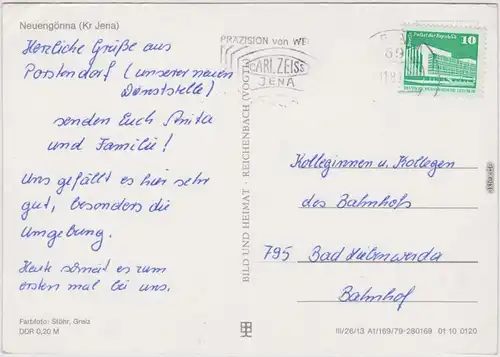 Neuengönna (Kr Jena)
Herzliche Grüße aus
Porstendorf (unserer neuen
Dienststelle)
senden Euch Anita
und Familie!
Uns gefällt es hier sehr
gut, besonders die
Umgebung.
Heute schneit es zum
ersten mal bei uns.
Farbfoto: Stöhr, Greiz
DDR 0,20 M
BILD UND HEIMAT REICHENBACH (VOGTL
PRÄZISION von WE
CARL ZEISS
JENA
Palast der Republik
10
DEUTSCHE DEMOKRATISCHE REPUBLIK
Kolleginnen u. Kollegen
des Bahnhofs
795 Bad Liebenwerda
Bahnhof
III/26/13 A1/169/79-280169 01 10 0120